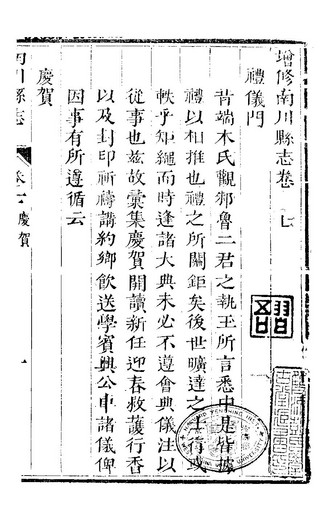 增修南川縣志卷七
禮儀門
昔端木氏觀邾魯二君之執玉所言悉中是皆據
禮以相推也禮之所關鉅矣後世曠達之士行或
軼乎矩繩而時逢諸大典未必不遵會典儀注以
從事也兹故彙集慶賀開讀新任迎春救護行香
以及封印祈禱講約鄉飲送學賓興公車諸儀俾
因事有所遵循云
慶賀
南川縣志
卷七 慶賀
一